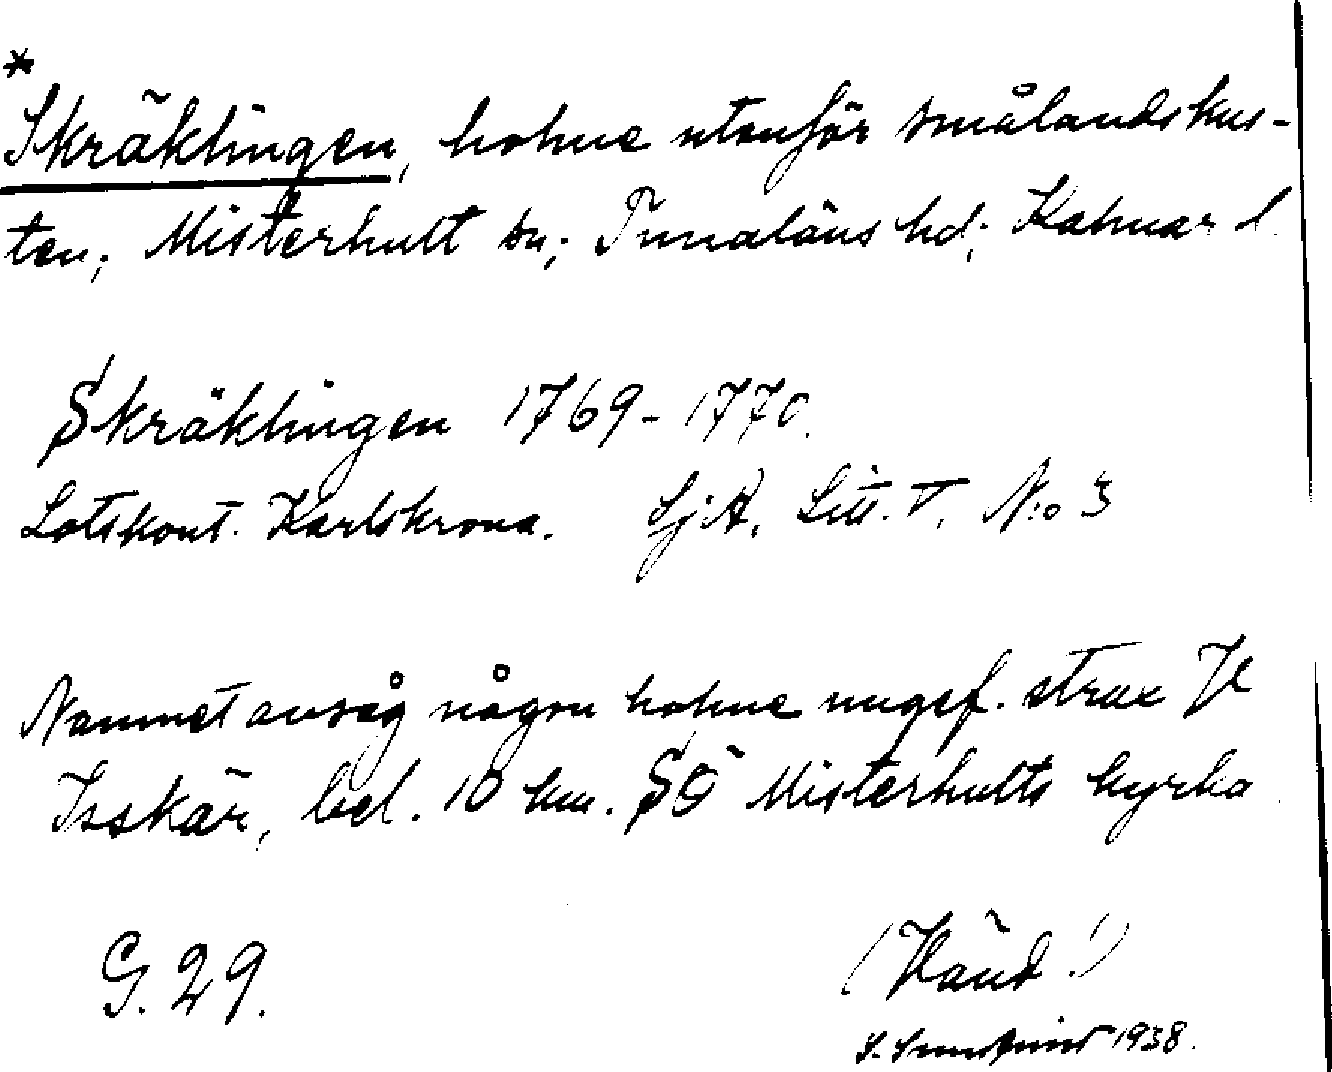 *
Skräklingen, holme utanför smålandskus-
ten; Misterhult sn; Tunaläns hd; Kalmar l.
Skräklingen 1769-1770.
Lotskont. Karlskrona. SjA, Litt. T. N:o 3
Namnet avsåg någon holme ungef. strax V
Isskär, bel. 10 km. SÖ Misterhults kyrka
G. 29.
(Vänd!)
1938.